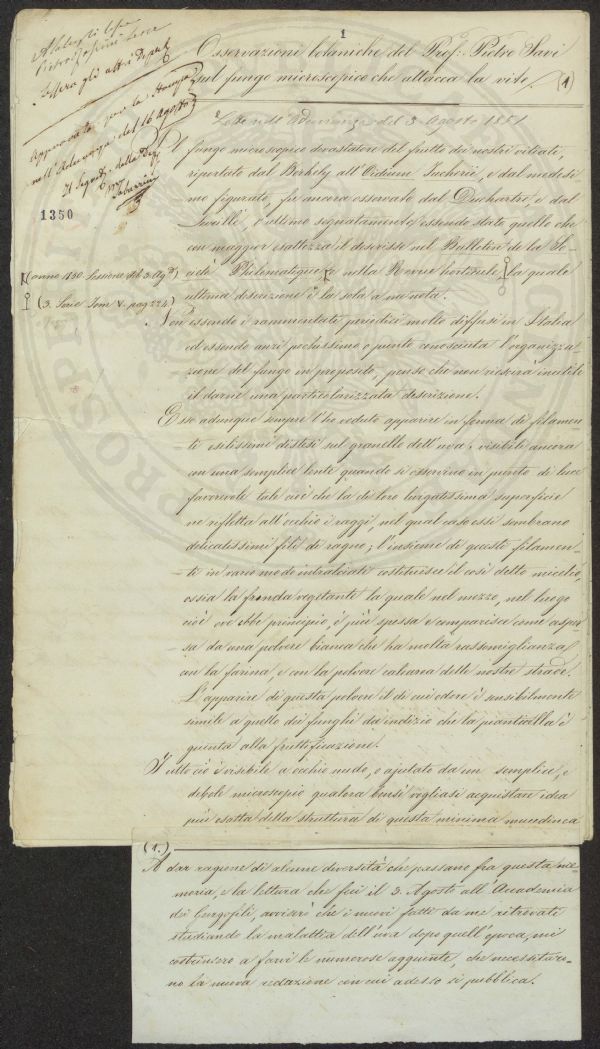 1
Osservazioni botaniche del Prof: Pietro Savi
sul fungo microscopico che attacca la vite. (1)
Letta nell'Adunanza del 3 Agosto 1851
Approvata per la Stampa
nell'Adunanza del 16 Agosto
Il Segret:
1350
Il fungo microscopico devastatore del frutto dei nostri viticci,
riportato dal Berkely all'Oidium Tuckerii, e dal medesi
mo figurato, fu ancora osservato dal Duchartre, e dal
Leveillé, e ultimo segnatamente essendo stato quello che
con maggior esattezza il descrisse nel Bulletin de la So-
cieté Philomatique e nella Revue horticole, la quale
ultima descrizione è la sola a me nota.
(anno 1850 Sessione del 3. Ag.)
(3. Serie Tom V. pag 224)
Non essendo i rammentati periodici molto diffusi in Italia
ed essendo anzi pochissimo o punto conosciuta l'organizza-
zione del fungo in proposito, penso che non riescirà inutile
il darne una particolarizzata descrizione.
Esso adunque sempre l'ho veduto apparire in forma di filamen-
ti esilissimi distesi sul granello dell'uva, visibile ancora
con una semplice lente quando si osservino in punto di luce
favorevole tale cioè che la di loro levigatissima superficie
ne rifletta all'occhio i raggi, nel qual caso essi sembrano
delicatissimi fili di ragno; l'insieme di questi filamen-
ti in vario modo intralciati costituisce il così detto micelio,
ossia la fronda vegetante la quale nel mezzo, nel luogo
cioè ove ebbe principio, è più spessa e comparisce come asper
sa da una polvere bianca che ha molta rassomiglianza
con la farina, e con la polvere calcarea delle nostre strade.
L'apparire di questa polvere il di cui odore è sensibilmente
simile a quello dei funghi dà indizio che la pianticella è
giunta alla fruttificazione.
Tutto ciò è visibile a occhio nudo, o ajutato da un semplice, e
debole microscopio qualora bensì vogliasi acquistare idea
più esatta della struttura di questa minima mucedinea
(1.)
A dar ragione di alcune diversità che passano fra questa me-
moria, e la lettura che feci il 3. Agosto all'Accademia
dei Georgofili, avviserò che i nuovi fatti da me ritrovati
studiando la malattia dell'uva dopo quell'epoca, mi
costrinsero a farvi le numerose aggiunte, che necessitaro-
no la nuova redazione con cui adesso si pubblica.